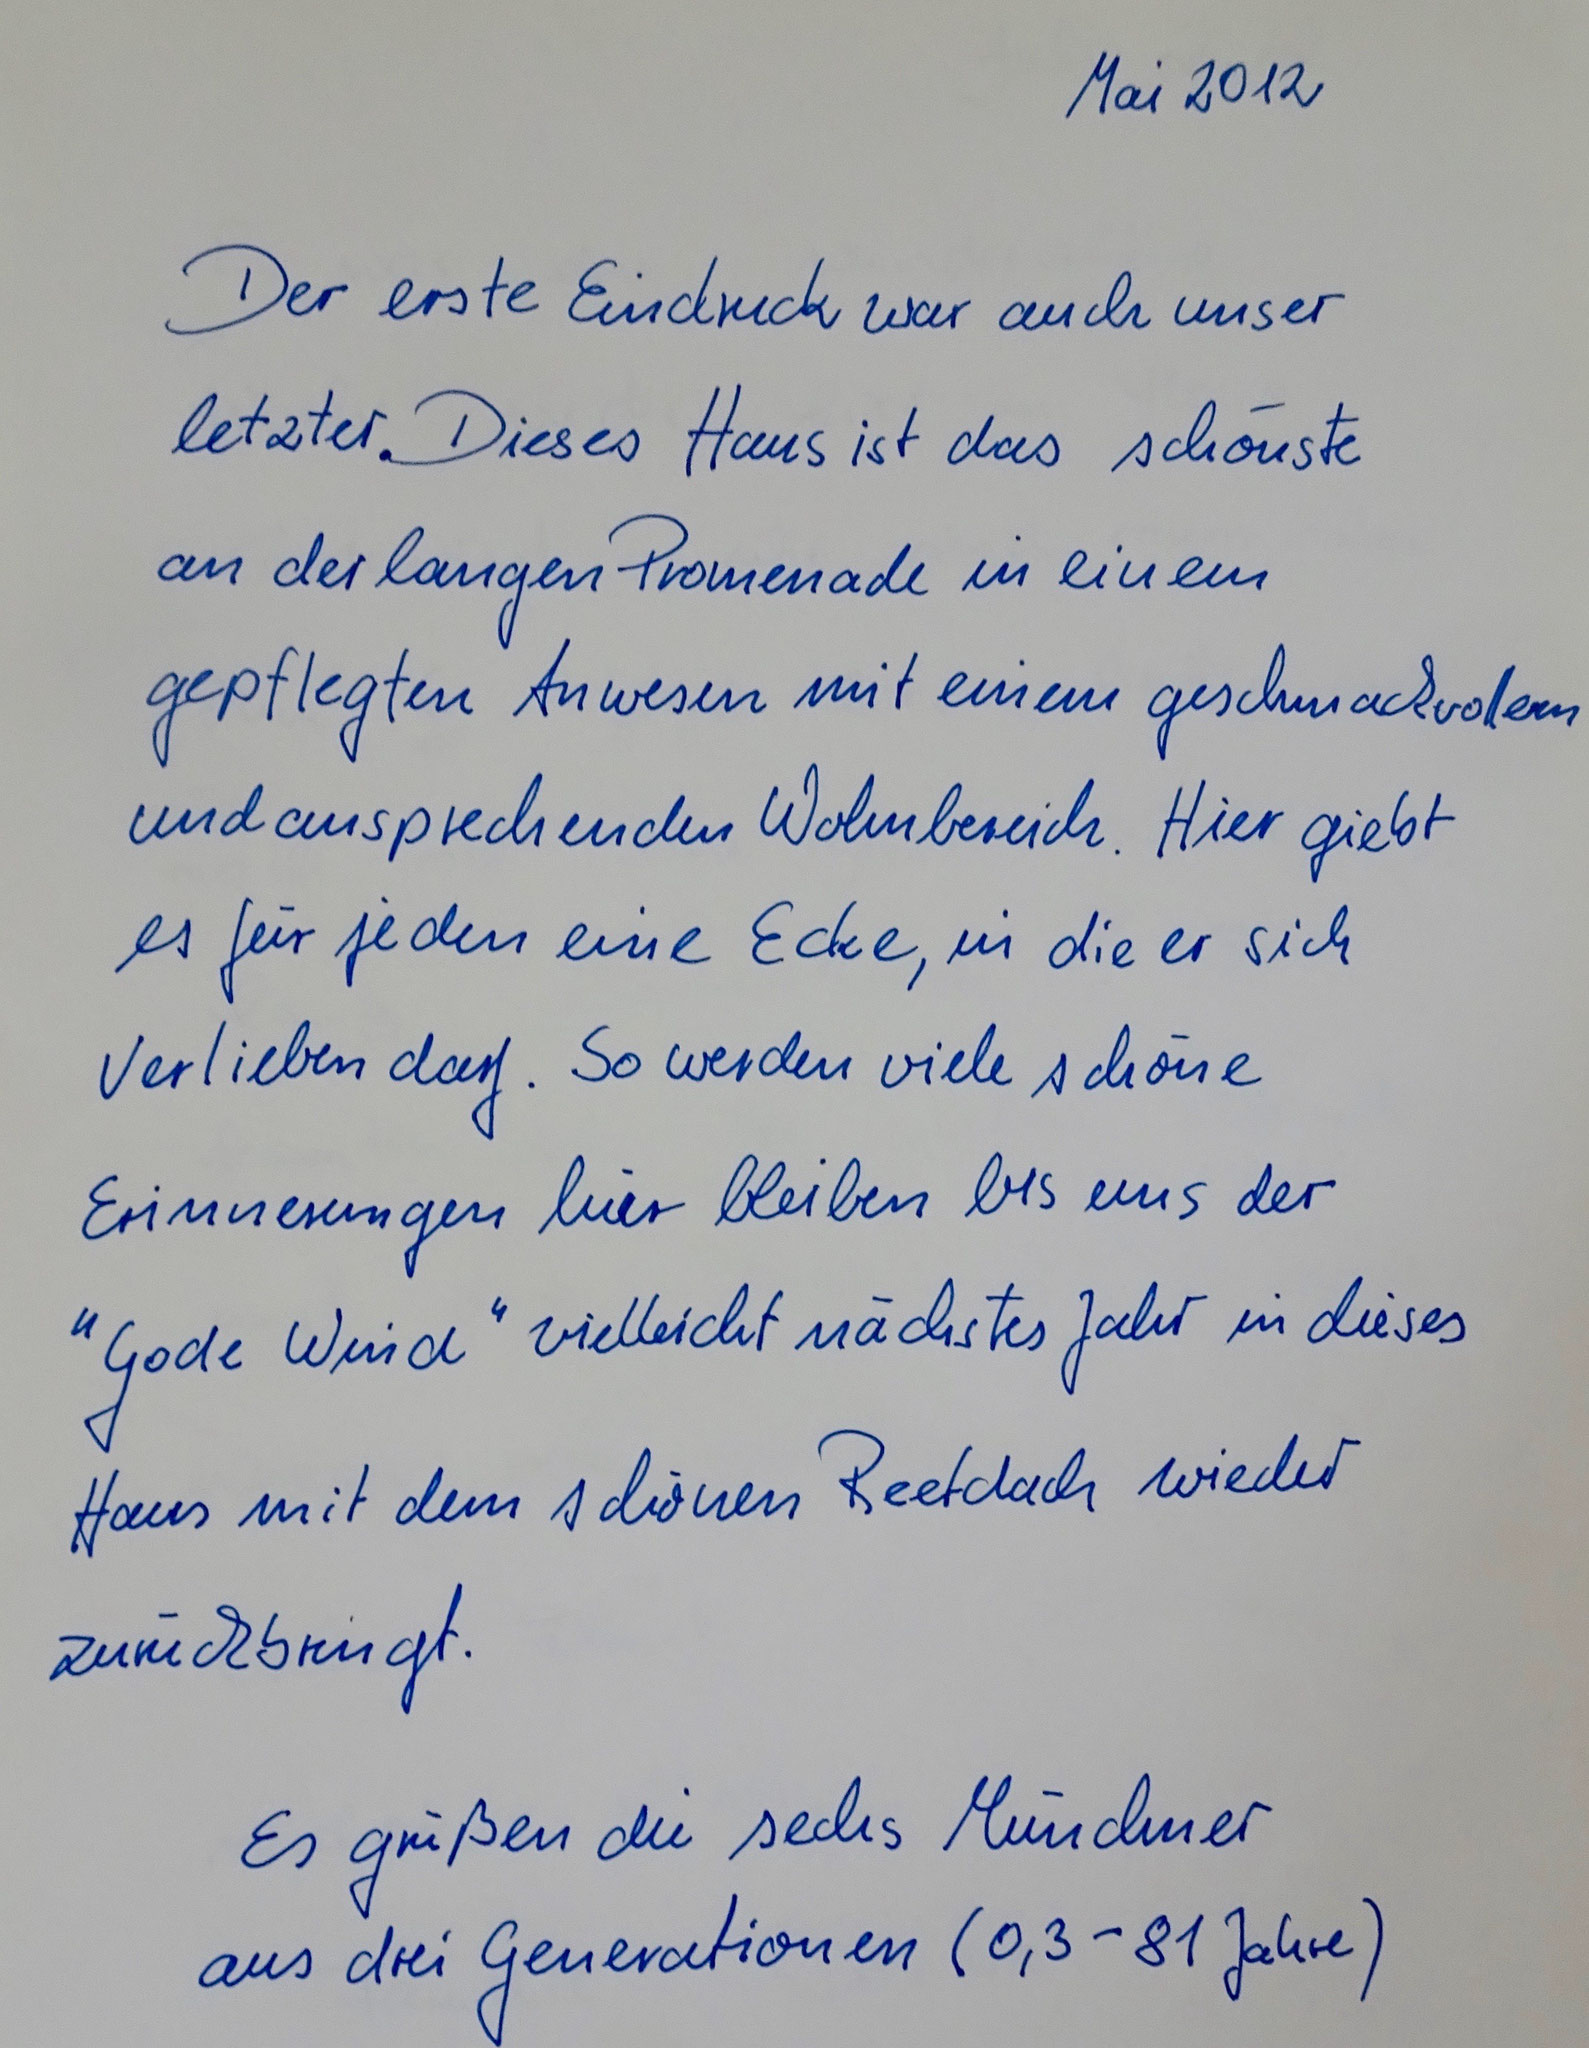 Mai 2012
Der erste Eindruck war auch unser
letzter. Dieses Haus ist das schönste
an der langen Promenade in einem
gepflegten Anwesen mit einem geschmackvolem
und ansprechenden Wohnbereich. Hier giebt
es für jeden eine Ecke, in die er sich
Verlieben darf. So werden viele schöne
Erinnerungen hier bleiben bis uns der
"Gode Wind" vielleicht nächstes Jahr in dieses
Haus mit dem schönen Reetdach wieder
zurückbringt.
Es grüßen die sechs Münchner
aus drei Generationen (0,3-81 Jahre)